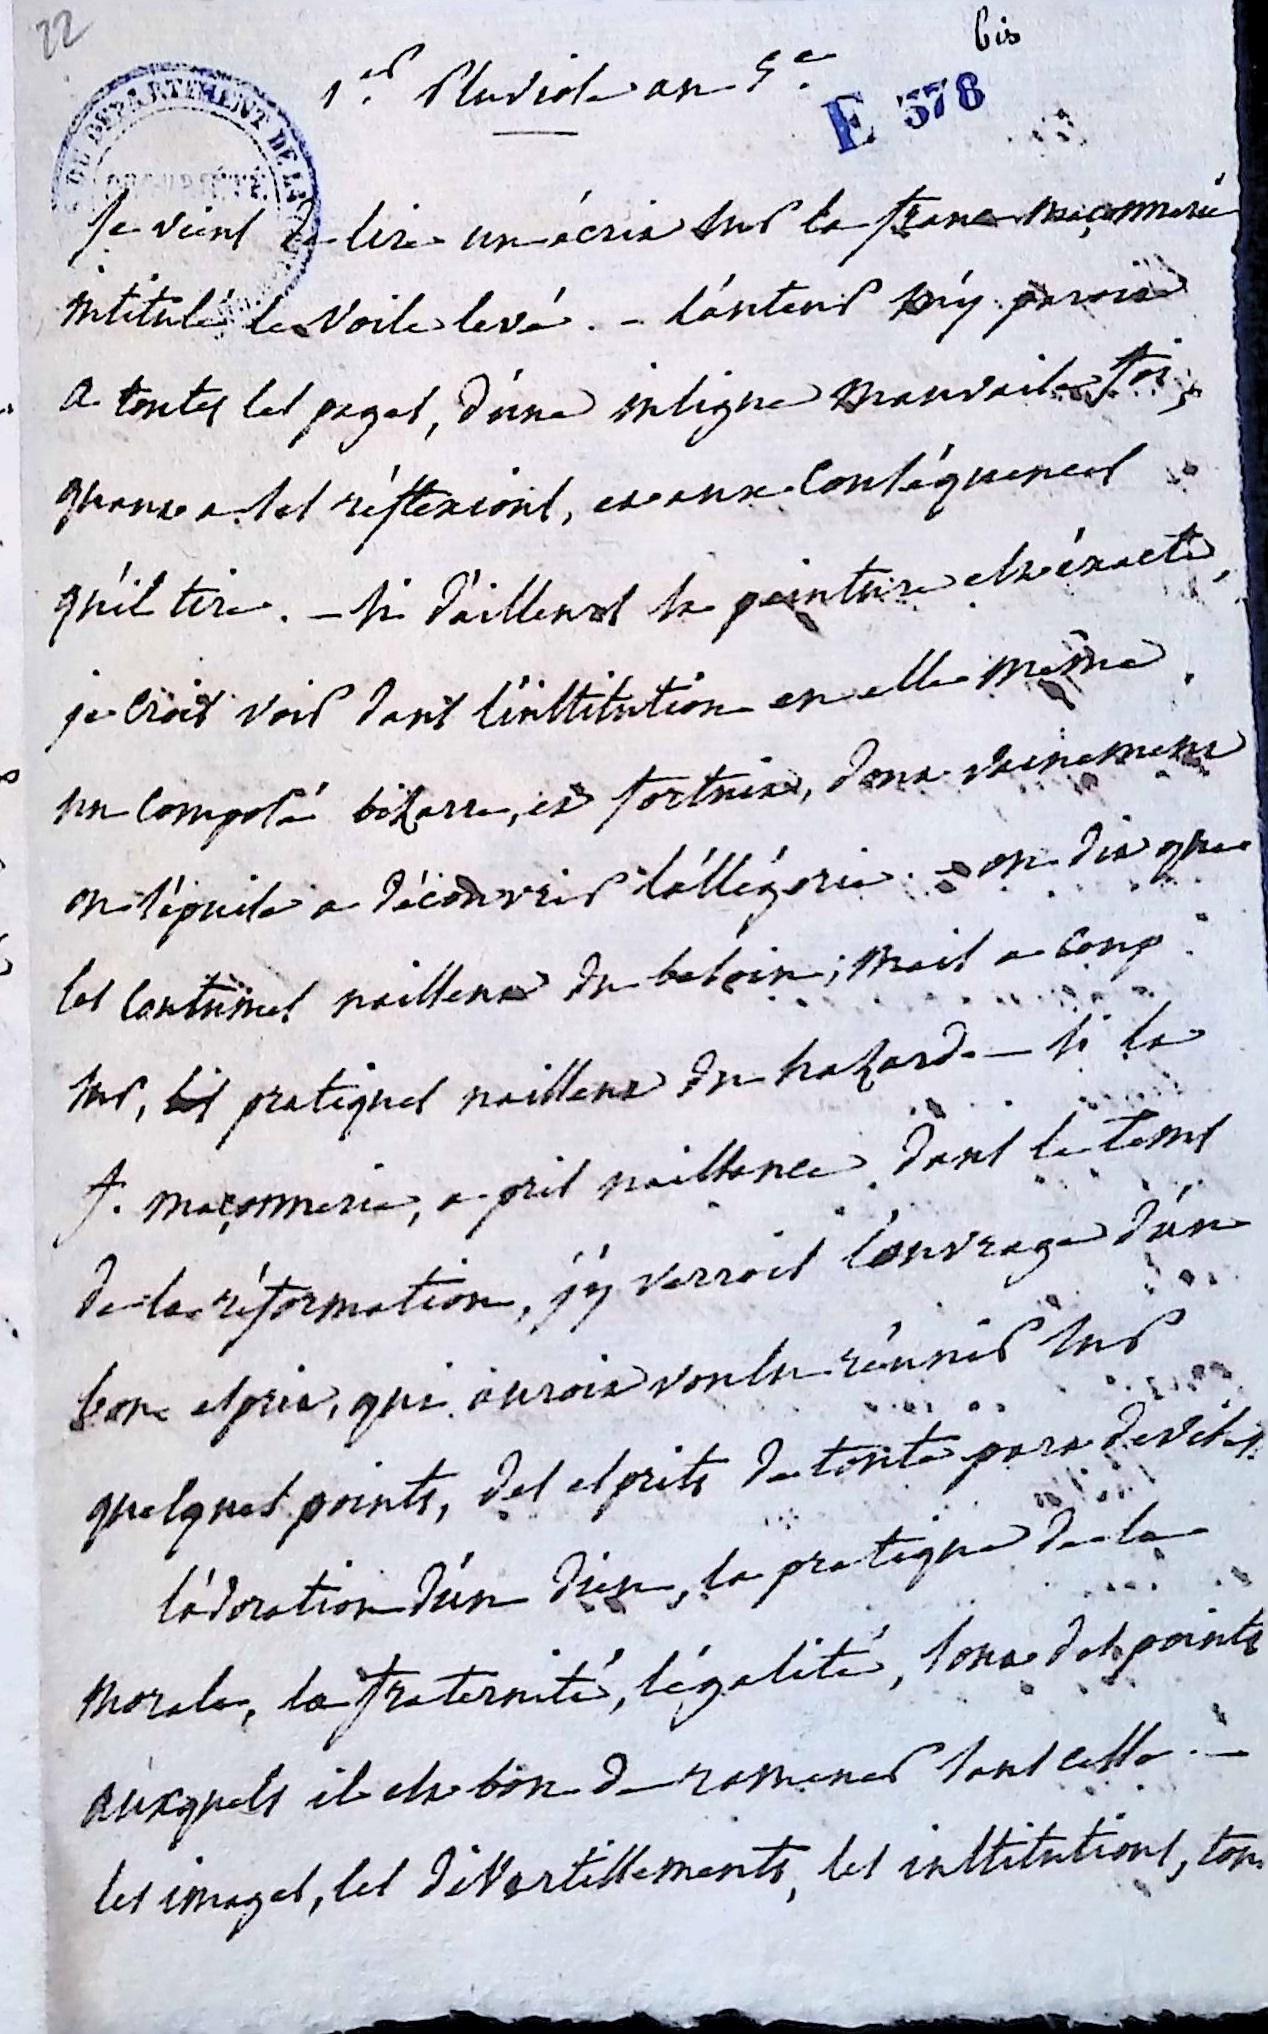 22
bis
1er. Pluviose an 5e.
E 378
DU DÉPARTEMENT DE LA
Je viens de lire un écrit sur la franc maçonnerie
intitulé le voile levé. - l'auteur m'y paroit
a toutes les pages, d'une insigne mauvaise foi,
quant a ses réflexions, et aux conséquences
qu'il tire. - si d'ailleurs sa peinture est éxacte,
je crois voir dans l'institution en elle même,
un composé bizarre, et fortuit, dont vainement
on s'épuise a découvrir l'allégorie. - on dit que
les coutumes naissent du besoin; mais a coup
sur, les pratiques naissent du hazard - si la
f. maçonnerie, a pris naissance dans le tems
de la réformation, j'y verrois l'ouvrage d'un
bon esprit, qui auroit voulu réunir sur
quelques points, des esprits de toute part divisés.
l'adoration d'un dieu, la pratique de la
morale, la fraternité, l'égalité, sont des points
auxquels il est bon de ramener sans cesse -
les images, les divertissements, les institutions, tout